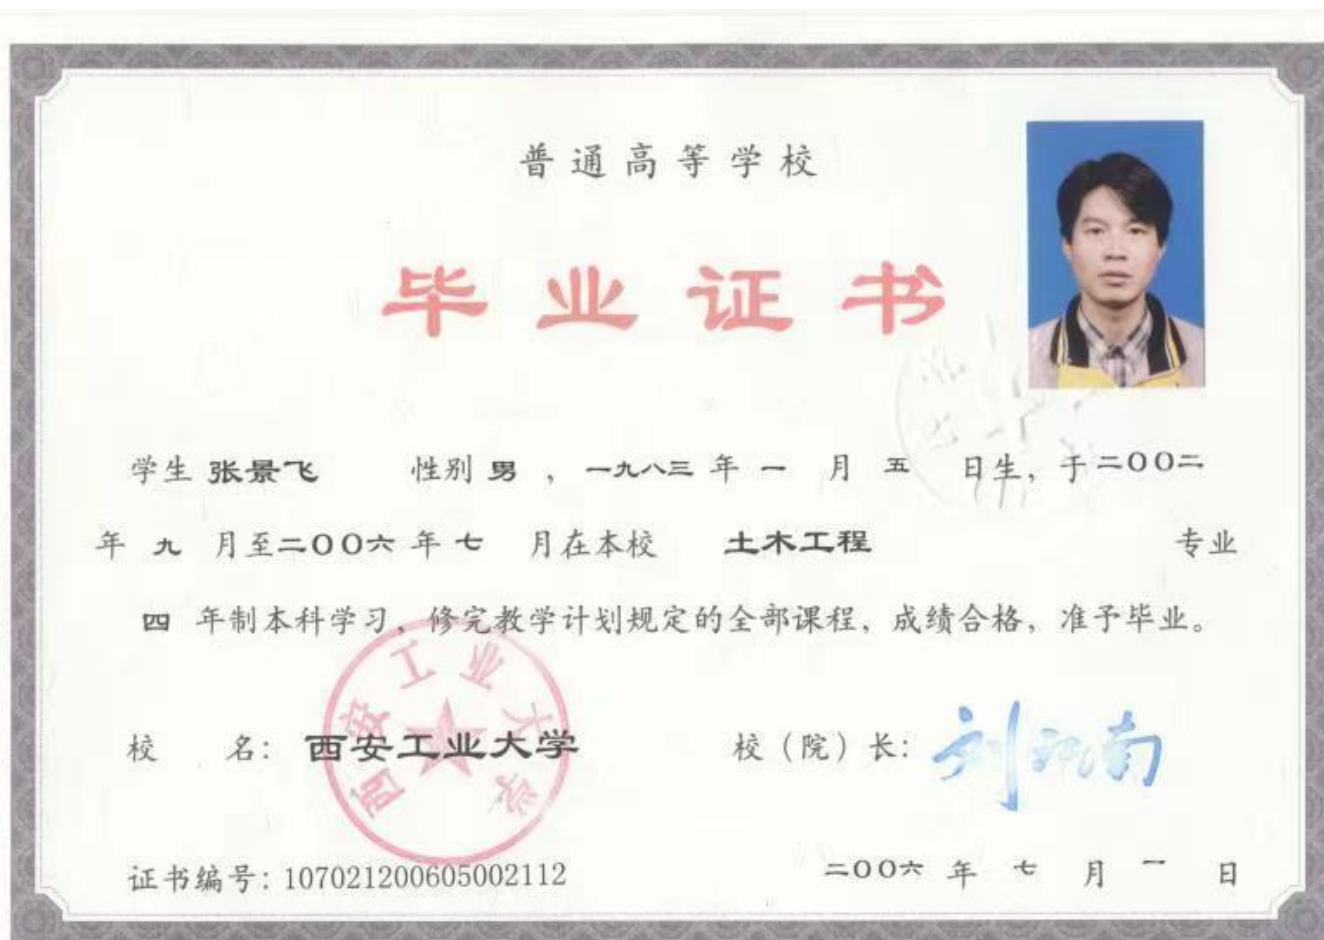 普通高等学校
毕业证书
学生 张景飞 性别 男 ，一九八三 年 一 月 五 日生，于二00二
年 九 月至二00六 年 七 月在本校 土木工程 专业
四 年制本科学习，修完教学计划规定的全部课程，成绩合格，准予毕业。
西安工业大学
校 名：西安工业大学 校（院）长：
证书编号：107021200605002112 二00六 年 七 月 一 日